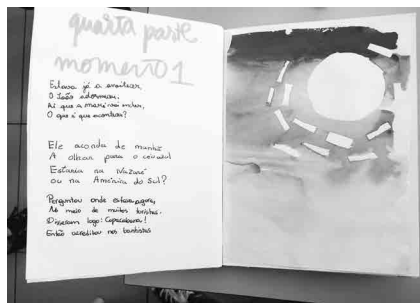 quarta parte
momento 1
Estava já a anoitecer,
O João adormeceu.
Ai que a maré vai encher,
O que é que aconteceu?
Ele acorda de manhã
A olhar para o céu azul
Estaria na Nazaré
ou na América do Sul?
Perguntou onde estava agora,
No meio de muitos turistas.
Disseram logo: Copacabana!
Então acreditou nos banhistas